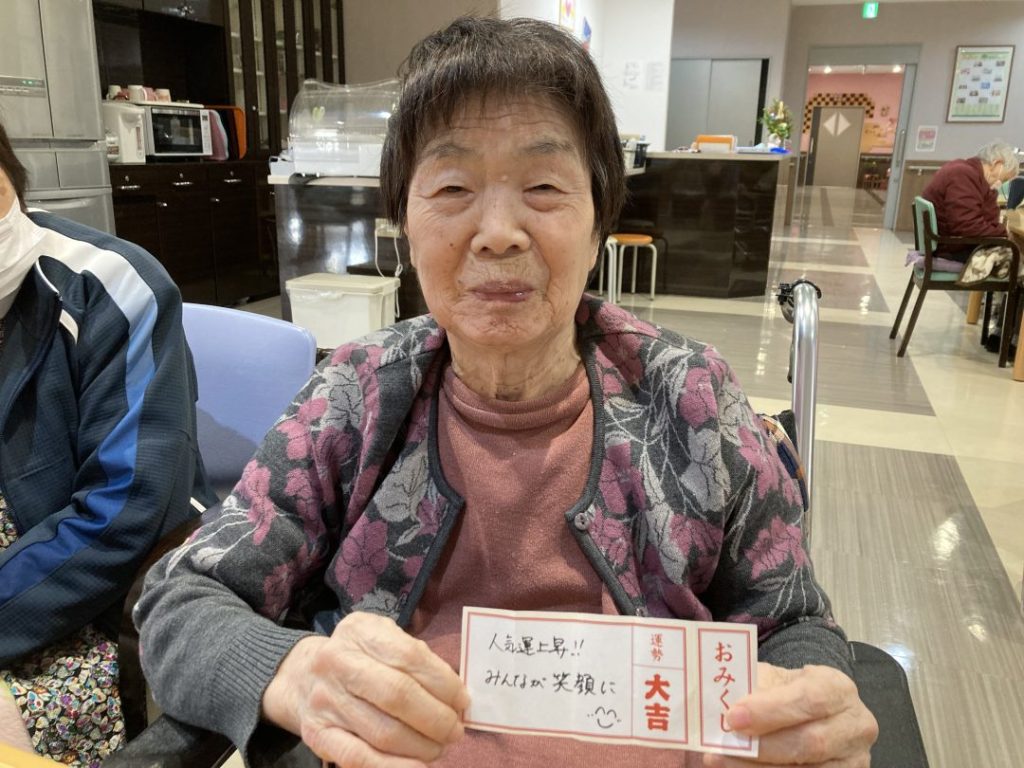 おみくじ
運勢
大吉
人気運上昇!!
みんなが笑顔に